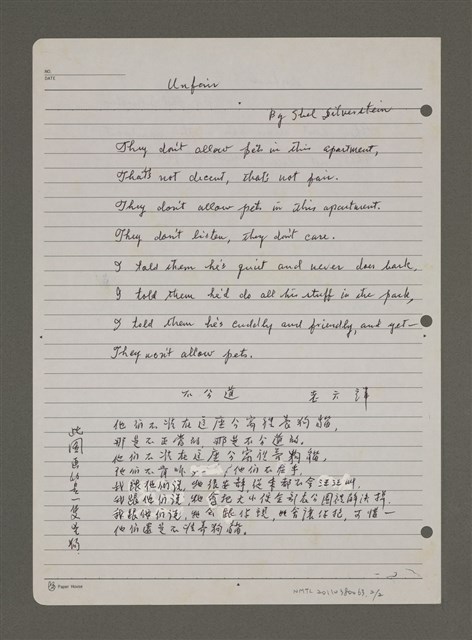 NO.
DATE
Unfair
By Shel Silverstein
They don't allow pets in this apartment,
That's not decent, that's not fair.
They don't allow pets in this apartment.
They don't listen, they don't care.
I told them he's quiet and never does bark,
I told them he'd do all his stuff in the park,
I told them he's cuddly and friendly, and yet—
They won't allow pets.
不公道 老六譯
他们不准在這座公寓裡養狗貓,
那是不正常的, 那是不公道的。
他们不准在這座公寓裡養狗貓,
他们不 他们不在乎,
我跟他们说, 從來都不會汪汪叫,
我跟他们说, 她會把大小便全到公園裡解決掉,
我跟他们说, 可惜—
他们還是不准養狗貓。
此圖画的是一隻
Paper House
NMTL 2011 2/2